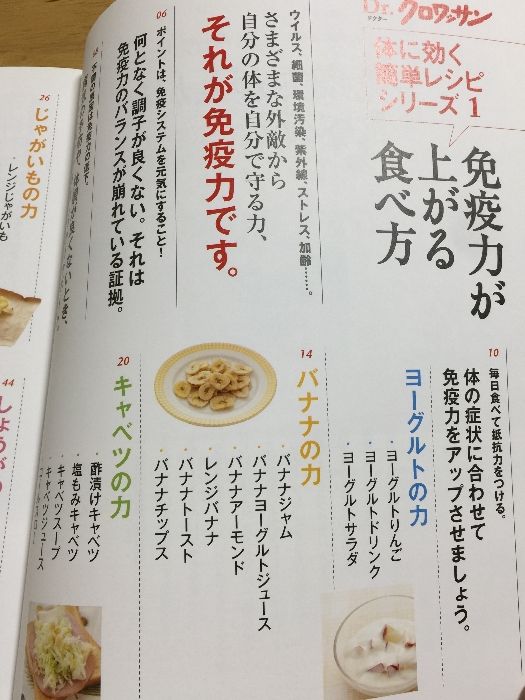 Dr.クロワッサン
ドクター
体に効く
簡単レシピ
シリーズ1
免疫力が
上がる
食べ方
ウイルス、細菌、環境汚染、紫外線、ストレス、加齢……。
さまざまな外敵から
自分の体を自分で守る力、
それが免疫力です。
06
ポイントは、免疫システムを元気にすること!
何となく調子が良くない。それは
免疫力のバランスが崩れている証拠。
10
毎日食べて抵抗力をつける。
体の症状に合わせて
免疫力をアップさせましょう。
ヨーグルトの力
・ヨーグルトりんご
・ヨーグルトドリンク
・ヨーグルトサラダ
14
バナナの力
・バナナジャム
・バナナヨーグルトジュース
・バナナアーモンド
・レンジバナナ
・バナナトースト
・バナナチップス
20
キャベツの力
・酢漬けキャベツ
・塩もみキャベツ
・キャベツスープ
・キャベツジュース
26
じゃがいもの力
・レンジじゃがいも
44
しょうがの